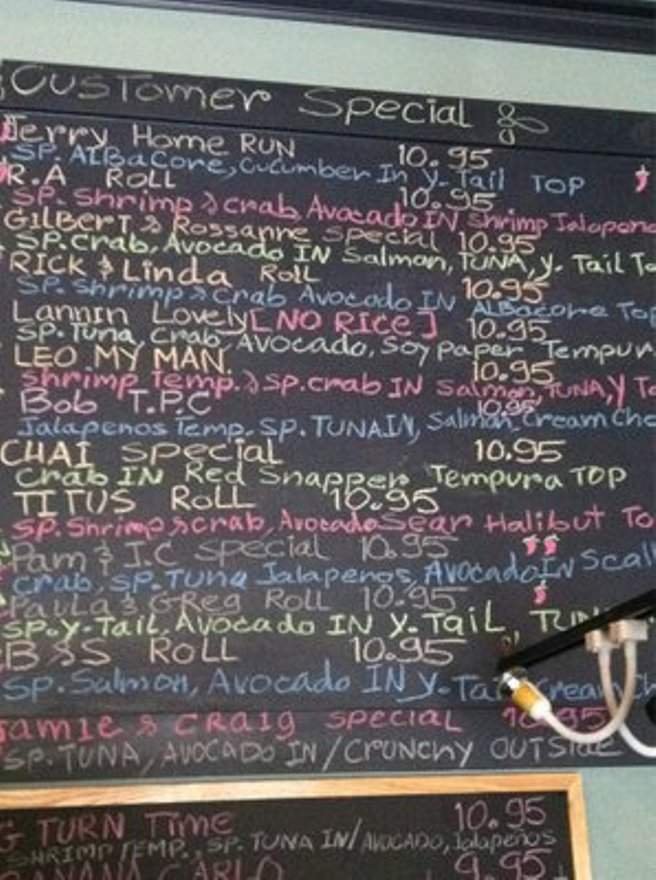 Customer Special
Jerry Home RUN 10.95
SP. AlBacore, Cucumber In Y. Tail TOP
R.A ROLL 10.95
SP. Shrimp & crab, Avocado IN Shrimp Jalapeno
GILBERT & Rossanne special 10.95
SP. Crab, Avocado IN Salmon, TUNA, Y. Tail To
RICK & Linda Roll 10.95
SP. Shrimp & Crab Avocado IN ALBacore Top
Lannin Lovely [NO RICE] 10.95
SP. Tuna, Crab, Avocado, Soy Paper Tempur
LEO MY MAN. 10.95
Shrimp Temp. & SP. crab IN Salmon, TUNA, Y To
Bob T.P.C 10.95
Jalapenos Temp. SP. TUNA IN, Salmon, Cream Che
CHAI special 10.95
Crab IN Red Snapper Tempura TOP
TITUS Roll 10.95
SP. Shrimp & crab, Avocado Sear Halibut To
Pam & J.C special 10.95
Crab, SP. Tuna Jalapenos, Avocado IN Scall
Paula & Greg Roll 10.95
SP. Y-Tail, Avocado IN Y. Tail, TUN
B & S ROLL 10.95
SP. Salmon, Avocado IN Y. Tai Cream Ch
Jamie & CRAIG special 10.95
SP. TUNA, AVOCADO IN/CRUNCHY OUTSIDE
G TURN Time 10.95
SHRIMP TEMP., SP. TUNA IN/AVOCADO, Jalapenos
BANANA CARLO 9.95